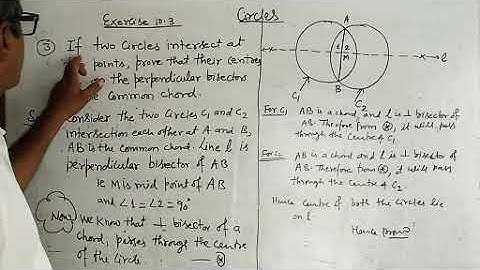 Exercise 10.3
Circles
③ If two circles intersect at
points, prove that their centres
on the perpendicular bisectors
common chord.
Consider the two Circles C₁ and C₂
intersection each other at A and B,
AB is the common chord. Line l is
perpendicular bisector of AB
ie M is mid point of AB
and ∠1 = ∠2 = 90°
Now, we know that ⊥ bisector of a
chord, passes through the centre
of the Circle. ⊛
A
1 2
M
B
x x l
C₁ C₂
For C₁ AB is a chord, and l is ⊥ bisector of
AB. Therefore from ⊛, it will pass
through the Centre of C₁
For C₂ AB is a chord and l is ⊥ bisector of
AB. Therefore from ⊛, it will pass
through the Centre of C₂.
Hence centre of both the Circles lie
on l
Hence proved